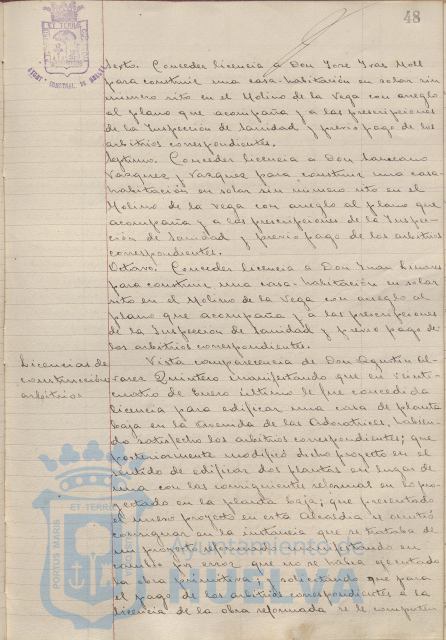 48
Sexto. Conceder licencia a Don José Fras Moll
para construir una casa-habitación en solar sin
número sito en el Molino de la Vega con arreglo
al plano que acompaña y a las prescripciones
de la Inspección de Sanidad y previo pago de los
arbitrios correspondientes.
Septimo. Conceder licencia a Don
Vazquez y Vazquez para construir una casa-
habitación en solar sin numero sito en el
Molino de la Vega con arreglo al plano que
acompaña y a las prescripciones de la Inspec-
ción de Sanidad y previo pago de los arbitrios
correspondientes.
Octavo. Conceder licencia a Don Juan
para construir una casa-habitación en solar
sito en el Molino de la Vega con arreglo al
plano que acompaña y a las prescripciones
de la Inspección de Sanidad y previo pago de
los arbitrios correspondientes.
Licencias de
construcción
arbitrios
Vista comparecencia de Don Agustin Al-
varez Quintero manifestando que en veinti-
cuatro de Enero último le fue concedida
licencia para edificar una casa de planta
baja en la Avenida de las Adoratrices, habien-
do satisfecho los arbitrios correspondientes; que
posteriormente modificó dicho proyecto en el
sentido de edificar dos plantas en lugar de
una con las consiguientes reformas en lo pro-
yectado en la planta baja; que presentado
el nuevo proyecto en esta Alcaldia se omitió
consignar en la instancia que se trataba de
un proyecto reformado
cambio por error que no se habia ejecutado
la obra primitiva; y solicitando que para
el pago de los arbitrios correspondientes a la
licencia de la obra reformada se le computen
PORTUS MARIS ET TERRAE
Ayuntamiento de
HUELVA